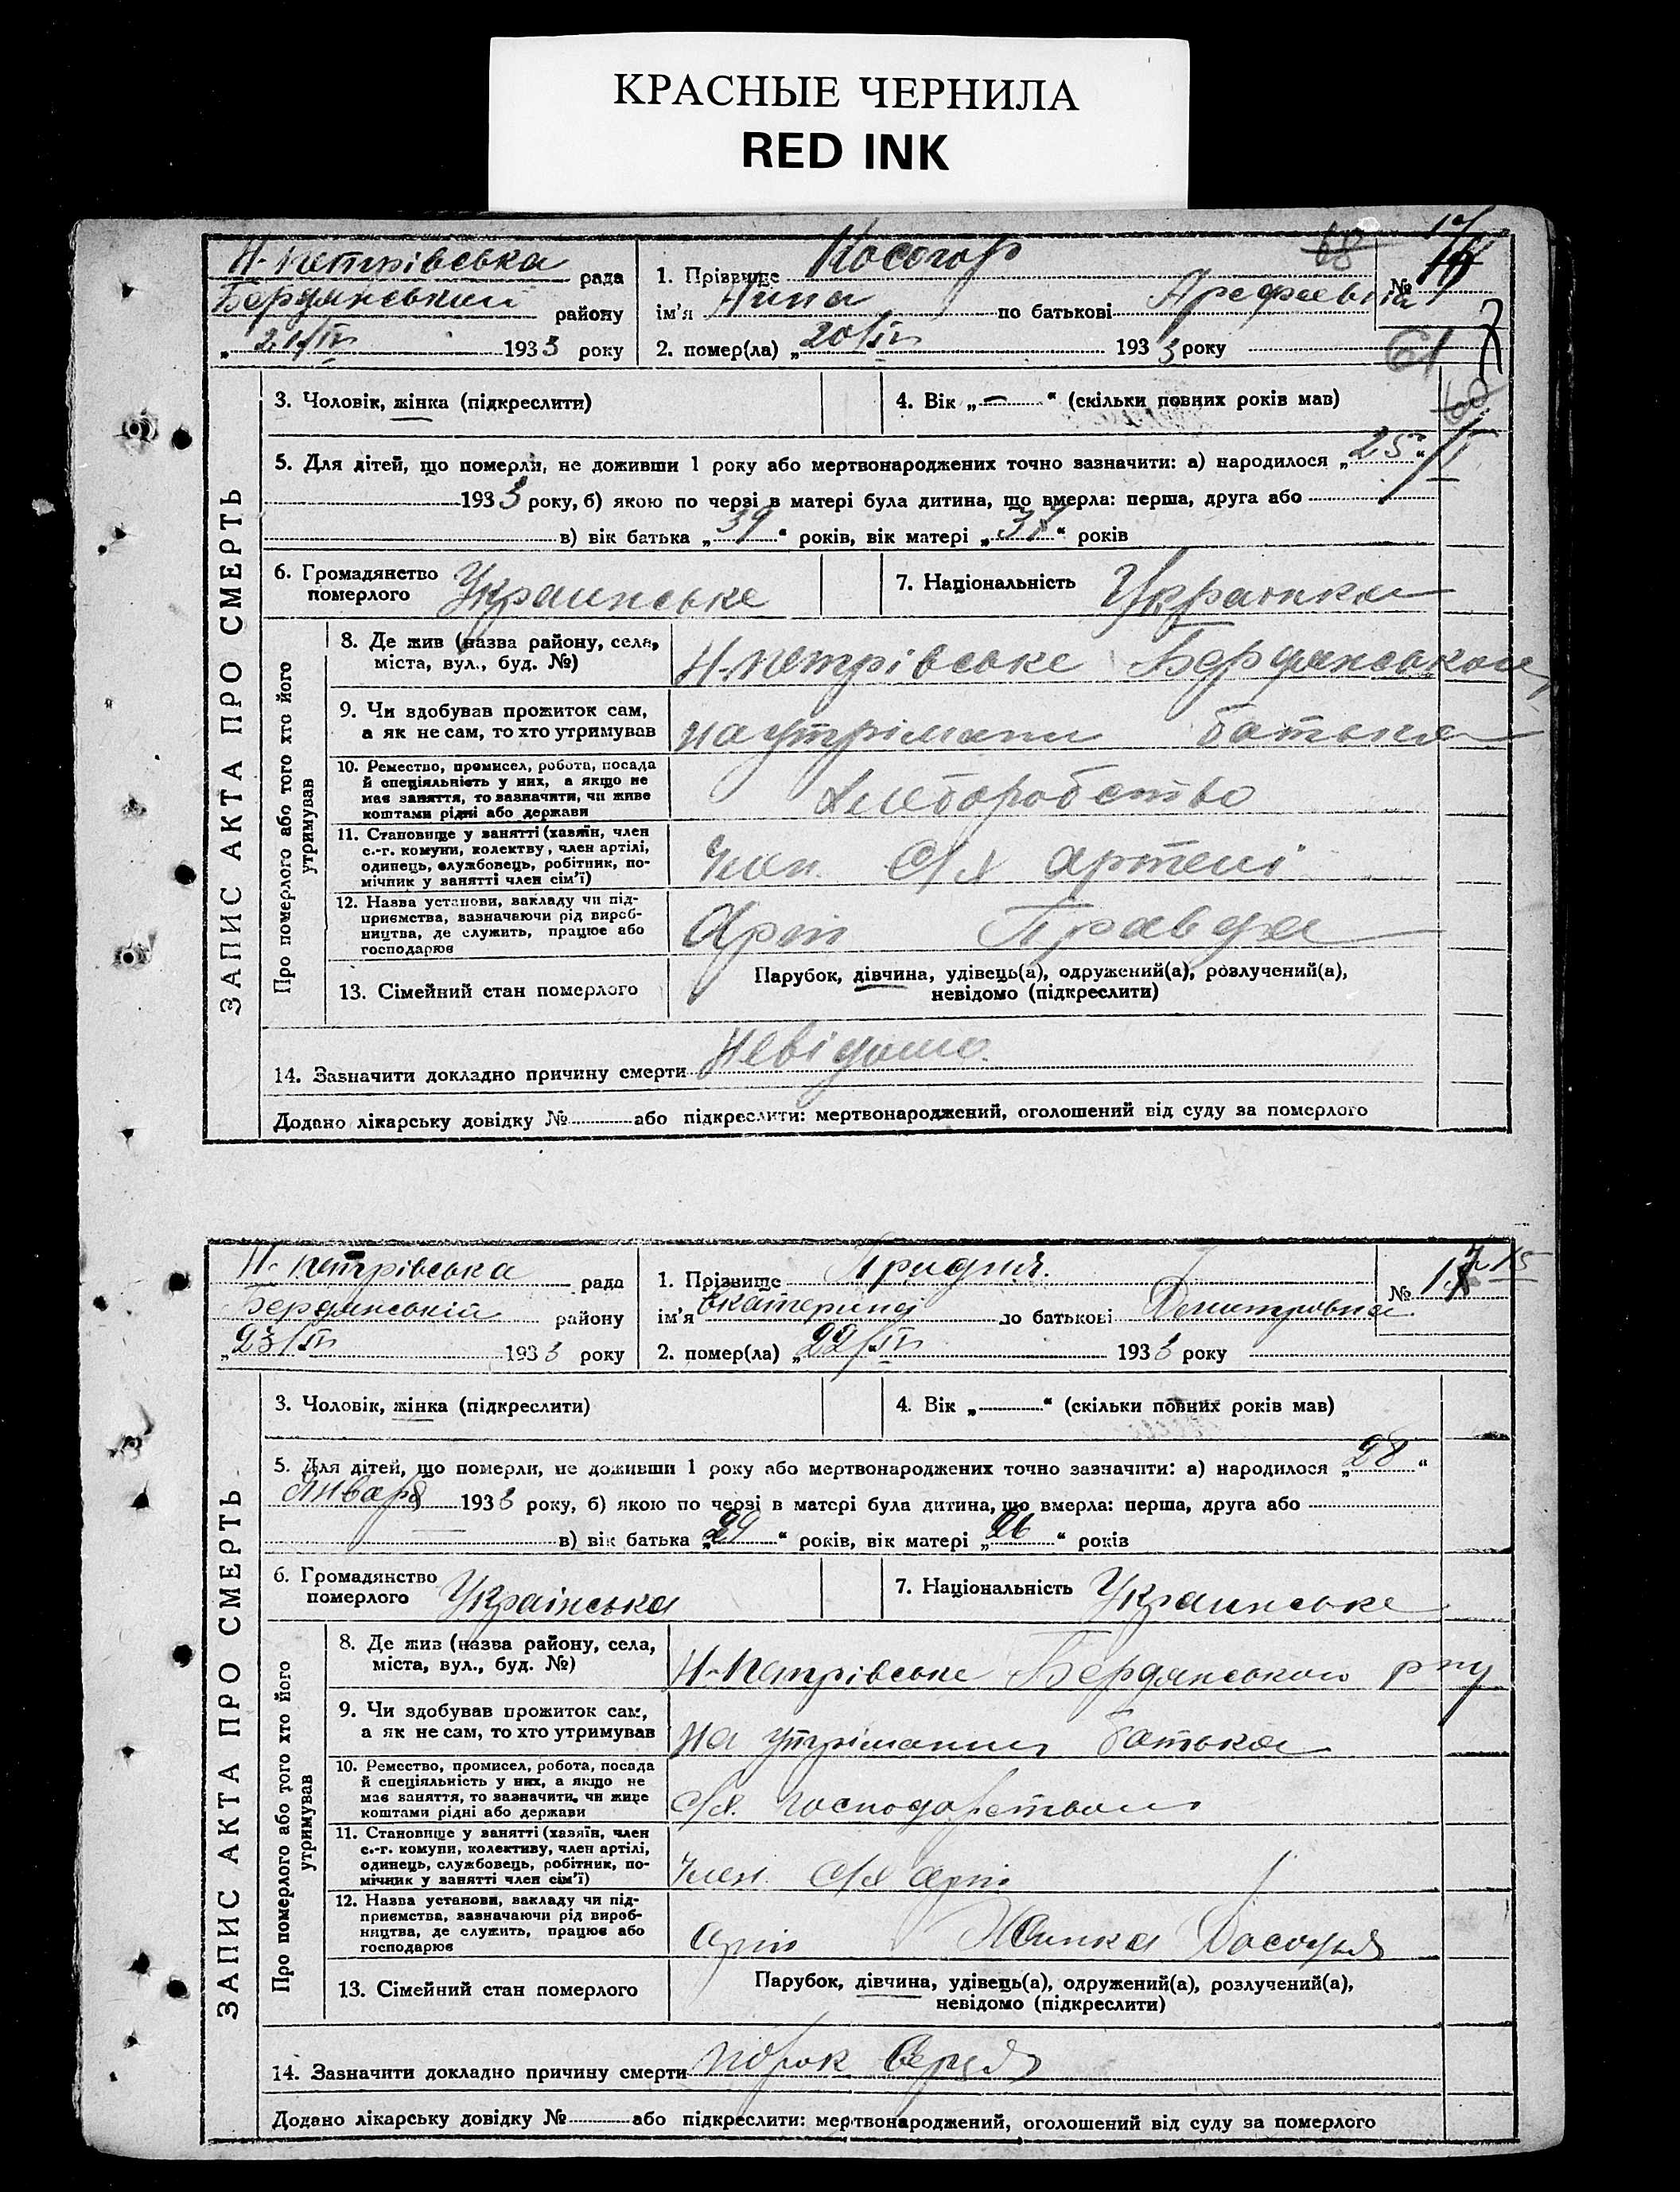 КРАСНЫЕ ЧЕРНИЛА
RED INK
Н-петрівська рада
Бердянський району
„ 21/IV 1933 року
1. Прізвище Косогор
ім'я Нина по батькові Арефиевна
2. помер(ла) „ 20/IV 1933 року
68
№
61
60
ЗАПИС АКТА ПРО СМЕРТЬ
3. Чоловік, жінка (підкреслити)
4. Вік „ — “ (скільки повних років мав)
5. Для дітей, що померли, не доживши 1 року або мертвонароджених точно зазначити: а) народилося „ 25 “
1933 року, б) якою по черзі в матері була дитина, що вмерла: перша, друга або
в) вік батька „ 39 “ років, вік матері „ 37 “ років
6. Громадянство померлого Украинське
7. Національність Украинка
Про померлого або того хто його утримував
8. Де жив (назва району, села,
міста, вул., буд. №)
Н-петрівське Бердянського
9. Чи здобував прожиток сам,
а як не сам, то хто утримував
на утрімани батька
10. Ремество, промисел, робота, посада
й спеціяльність у них, а якщо не
має заняття, то зазначити, чи живе
коштами рідні або держави
Хлеборобство
11. Становище у занятті (хазяїн, член
с.-г. комуни, колективу, член артілі,
одинець, службовець, робітник, по-
мічник у занятті член сім'ї)
член С/х артелі
12. Назва установи, закладу чи під-
приємства, зазначаючи рід вироб-
ництва, де служить, працює або
господарює
Арт Правда
13. Сімейний стан померлого
Парубок, дівчина, удівець(а), одружений(а), розлучений(а),
невідомо (підкреслити)
14. Зазначити докладно причину смерти Невідома
Додано лікарську довідку № або підкреслити: мертвонароджений, оголошений від суду за померлого
Н-петрівська рада
Бердянській району
„ 23/IV 1933 року
1. Прізвище Придня
ім'я Екатерина по батькові Дмитровна
2. помер(ла) „ 22/IV 1933 року
№
15
ЗАПИС АКТА ПРО СМЕРТЬ
3. Чоловік, жінка (підкреслити)
4. Вік „ “ (скільки повних років мав)
5. Для дітей, що померли, не доживши 1 року або мертвонароджених точно зазначити: а) народилося „ 28 “
Января 1933 року, б) якою по черзі в матері була дитина, що вмерла: перша, друга або
в) вік батька „ 29 “ років, вік матері „ 26 “ років
6. Громадянство померлого Українська
7. Національність Украинське
Про померлого або того хто його утримував
8. Де жив (назва району, села,
міста, вул., буд. №)
Н-Петрівське Бердянського р-ну
9. Чи здобував прожиток сам,
а як не сам, то хто утримував
на утріманни батька
10. Ремество, промисел, робота, посада
й спеціяльність у них, а якщо не
має заняття, то зазначити, чи живе
коштами рідні або держави
С/х. господарством
11. Становище у занятті (хазяїн, член
с.-г. комуни, колективу, член артілі,
одинець, службовець, робітник, по-
мічник у занятті член сім'ї)
член С/х арт
12. Назва установи, закладу чи під-
приємства, зазначаючи рід вироб-
ництва, де служить, працює або
господарює
арт
13. Сімейний стан померлого
Парубок, дівчина, удівець(а), одружений(а), розлучений(а),
невідомо (підкреслити)
14. Зазначити докладно причину смерти порок серця
Додано лікарську довідку № або підкреслити: мертвонароджений, оголошений від суду за померлого